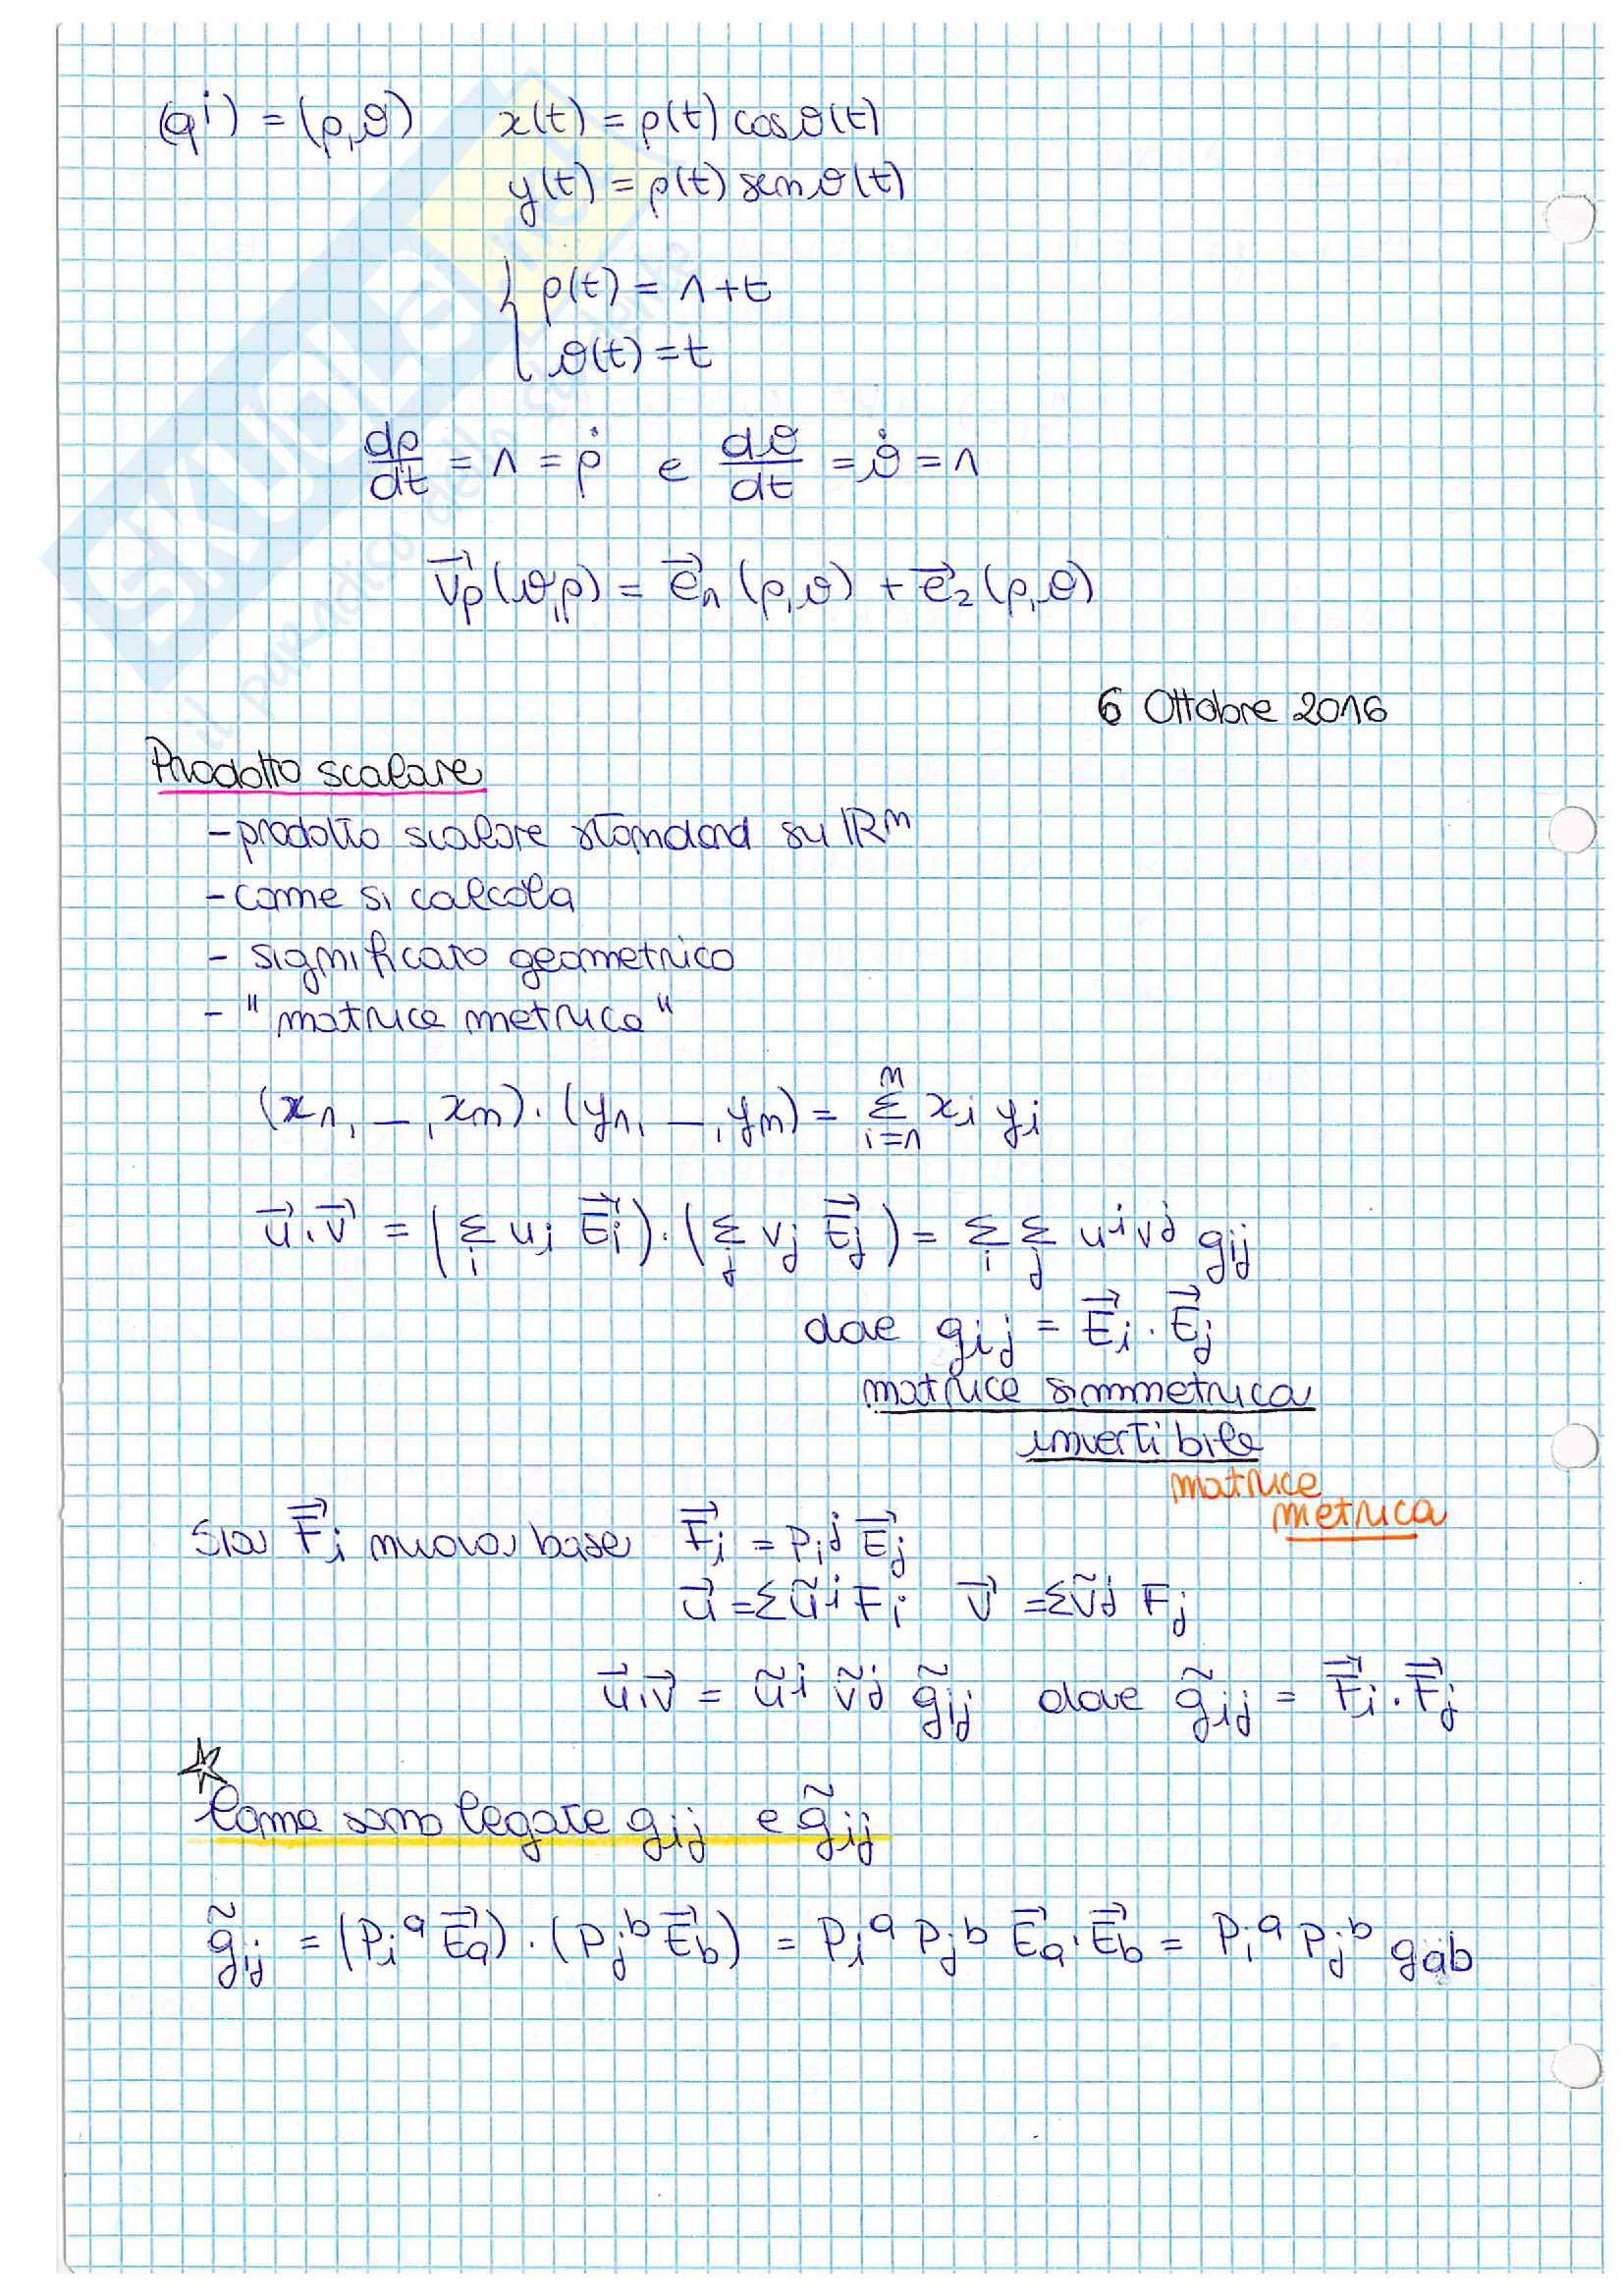 (qⁱ) = (ρ,ϑ) x(t) = ρ(t) cosϑ(t)
y(t) = ρ(t) senϑ(t)
{ ρ(t) = 1+t
ϑ(t) = t
dρ/dt = 1 = ρ̇ e dϑ/dt = ϑ̇ = 1
v⃗p (ϑ,ρ) = e⃗₁ (ρ,ϑ) + e⃗₂ (ρ,ϑ)
6 Ottobre 2016
Prodotto scalare
- prodotto scalare standard su ℝⁿ
- come si calcola
- significato geometrico
- "matrice metrica"
(x₁, _ , xₙ) · (y₁, _ , yₙ) = Σⁿᵢ₌₁ xᵢ yᵢ
u⃗ · v⃗ = (Σᵢ uᵢ E⃗ᵢ) · (Σⱼ vⱼ E⃗ⱼ) = Σᵢ Σⱼ uⁱ vʲ gᵢⱼ
dove gᵢⱼ = E⃗ᵢ · E⃗ⱼ
matrice simmetrica
invertibile
matrice
metrica
Sia F⃗ᵢ nuova base F⃗ᵢ = Pᵢʲ E⃗ⱼ
u⃗ = Σ ũⁱ Fᵢ v⃗ = Σ ṽʲ Fⱼ
u⃗ · v⃗ = ũⁱ ṽʲ g̃ᵢⱼ dove g̃ᵢⱼ = F⃗ᵢ · F⃗ⱼ
Come sono legate gᵢⱼ e g̃ᵢⱼ
g̃ᵢⱼ = (Pᵢᵃ E⃗ₐ) · (Pⱼᵇ E⃗b) = Pᵢᵃ Pⱼᵇ E⃗ₐ · E⃗b = Pᵢᵃ Pⱼᵇ gab
SKUOLA.NET
il paradiso dello studente